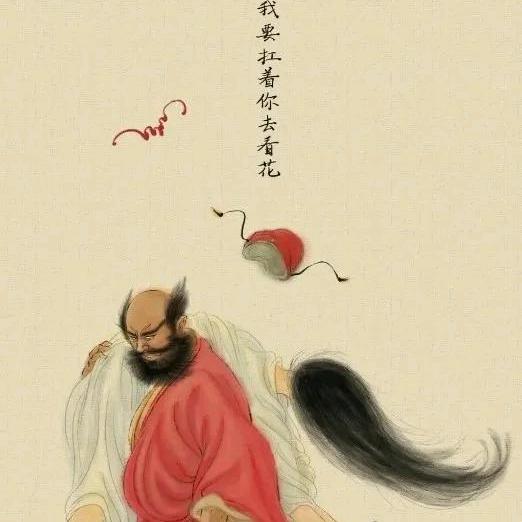 我要扛着你去看花